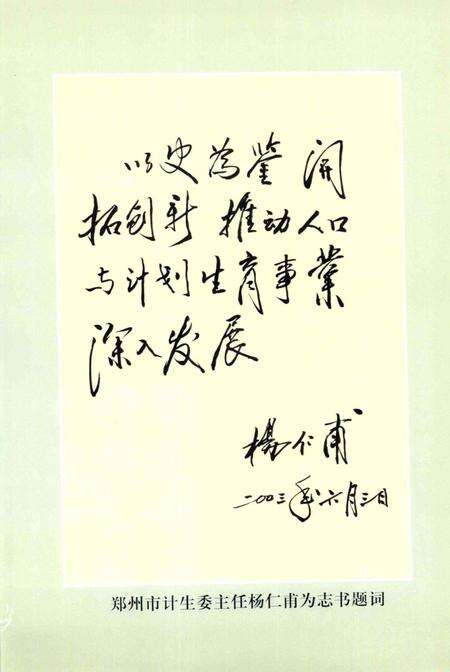 以史为鉴 開
拓创新 推动人口
与计划生育事業
深入发展
楊仁甫
二00三年六月三日
郑州市计生委主任杨仁甫为志书题词